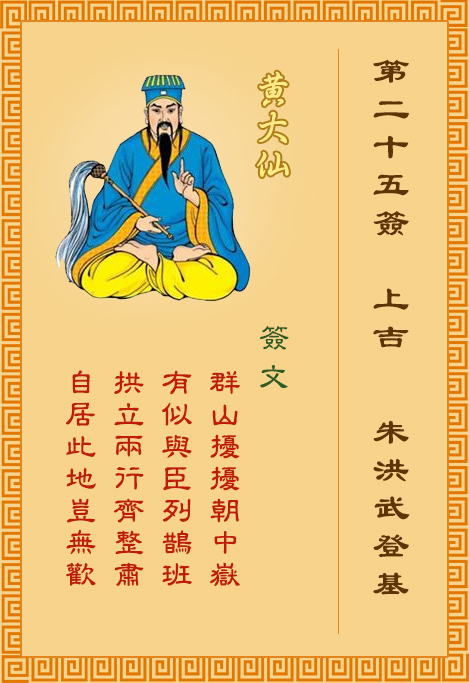 第二十五簽 上吉 朱洪武登基
黃大仙
簽文
群山擾擾朝中嶽
有似與臣列鵲班
拱立兩行齊整肅
自居此地豈無歡